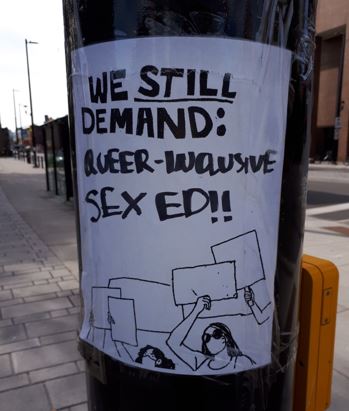 WE STILL
DEMAND:
QUEER-INCLUSIVE
SEX ED!!